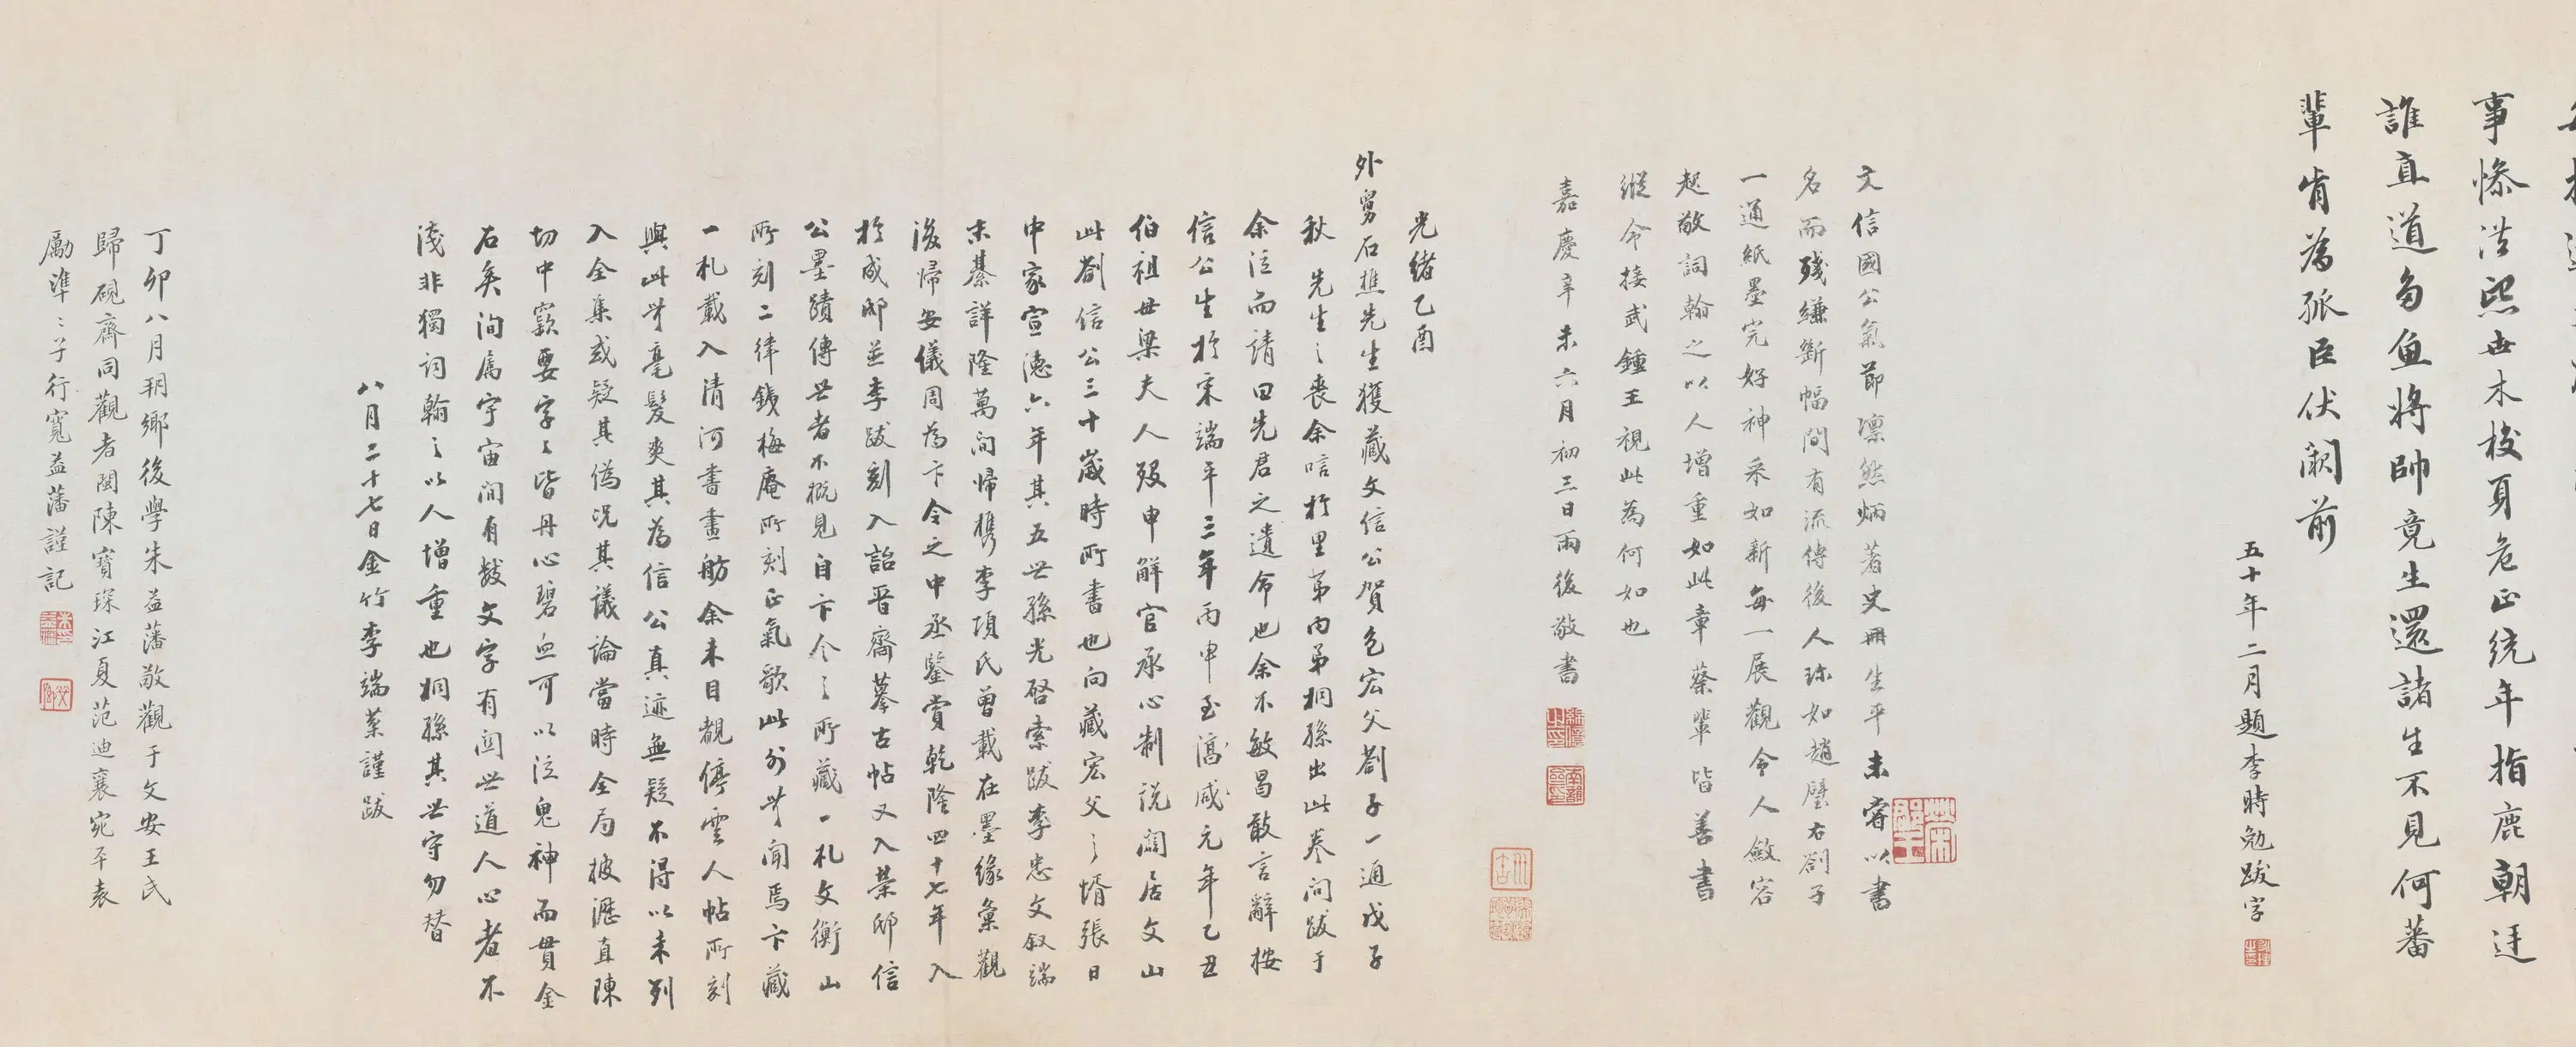 事慘浩熙世木校頁危正統年指鹿朝廷
誰直道芻魚將帥竟生還諸生不見何蕃
輩肯為孤臣伏闕前
五十年二月題李時勉跋字
文信國公氣節凛然炳著史冊生平未嘗以書
名而殘縑斷幅間有流傳後人珍如趙璧右劄子
一通紙墨完好神采如新每一展觀令人斂容
起敬詞翰之以人增重如此章蔡輩皆善書
縱令接武鍾王視此為何如也
嘉慶辛未六月初三日雨後敬書
光緒乙酉
外舅石樵先生獲藏文信公賀包宏父劄子一通戊子
秋先生之喪余唁於里弟內弟桐孫出此卷問跋于
余泣而請曰先君之遺命也余不敏曷敢言辭按
信公生於宋端平三年丙申至咸元年乙丑
伯祖母梁夫人歿申解官承心制說闢居文山
此劄信公三十歲時所書也向藏宏父之婿張日
中家宣德六年其五世孫光啓索跋李忠文叙端
末綦詳隆萬間歸檇李項氏曾載在墨緣彙觀
後歸安儀周為卞令之中丞鑒賞乾隆四十七年入
於成邸並李跋刻入詒晉齋摹古帖又入榮邸信
公墨蹟傳世者不概見自卞令之所藏一札文衡山
所刻二律錢梅庵所刻正氣歌此外尠聞焉卞藏
一札載入清河書畫舫余未目覩停雲人帖所刻
與此毫髮爽其為信公真迹無疑不得以未列
入全集或疑其偽況其議論當時全局披瀝直陳
切中窾要字字皆丹心碧血可以泣鬼神而貫金
石矣洵為宇宙間有數文字有關世道人心者不
淺非獨詞翰之以人增重也桐孫其世守勿替
八月二十七日金竹李端棻謹跋
丁卯八月朔鄉後學朱益藩敬觀于文安王氏
歸硯齋同觀者閩陳寶琛江夏范迪襄宛平袁
勵準準子行寬益藩謹記